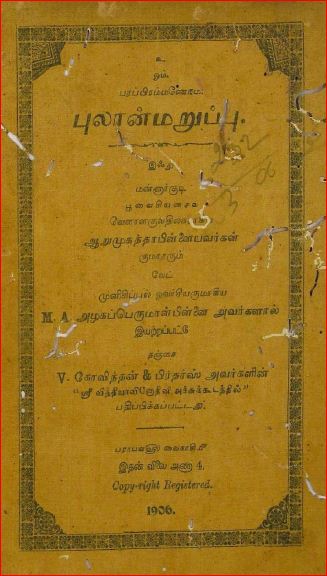 உ
ஓம்.
பரப்பிரம்மணேநம:
புலான்மறுப்பு.
இஃது
மன்னார்குடி
ஆறுமுகத்தாபிள்ளையவர்கள்
குமாரரும்
லேட்
முனிசிபல் ஓவர்சியருமாகிய
M. A. அழகப்பெருமாள்பிள்ளை அவர்களால்
இயற்றப்பட்டு
தஞ்சை
V. கோவிந்தன் & பிரதர்ஸ் அவர்களின்
"ஸ்ரீ வித்தியாவிநோதினி அச்சுக்கூடத்தில்"
பதிப்பிக்கப்பட்டது.
பராபவளு வைகாசிமீ
இதன் விலை அணா 4.
Copy-right Registered.
1906.